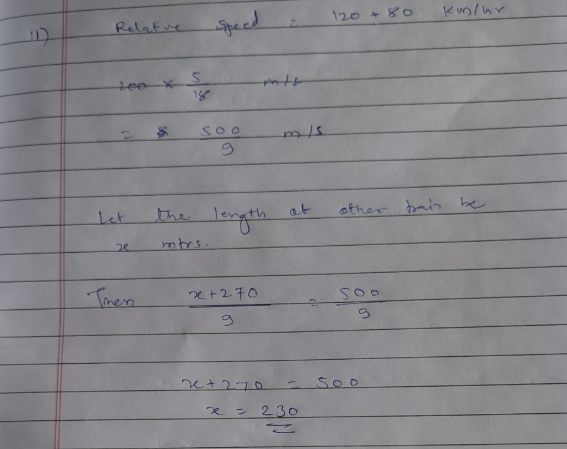 11) Relative Speed = 120 + 80 Km/hr
200 × 5/18 m/s
= 500/9 m/s
Let the length of other train be
x mtrs.
Then x+270/9 = 500/9
x+270 = 500
x = 230